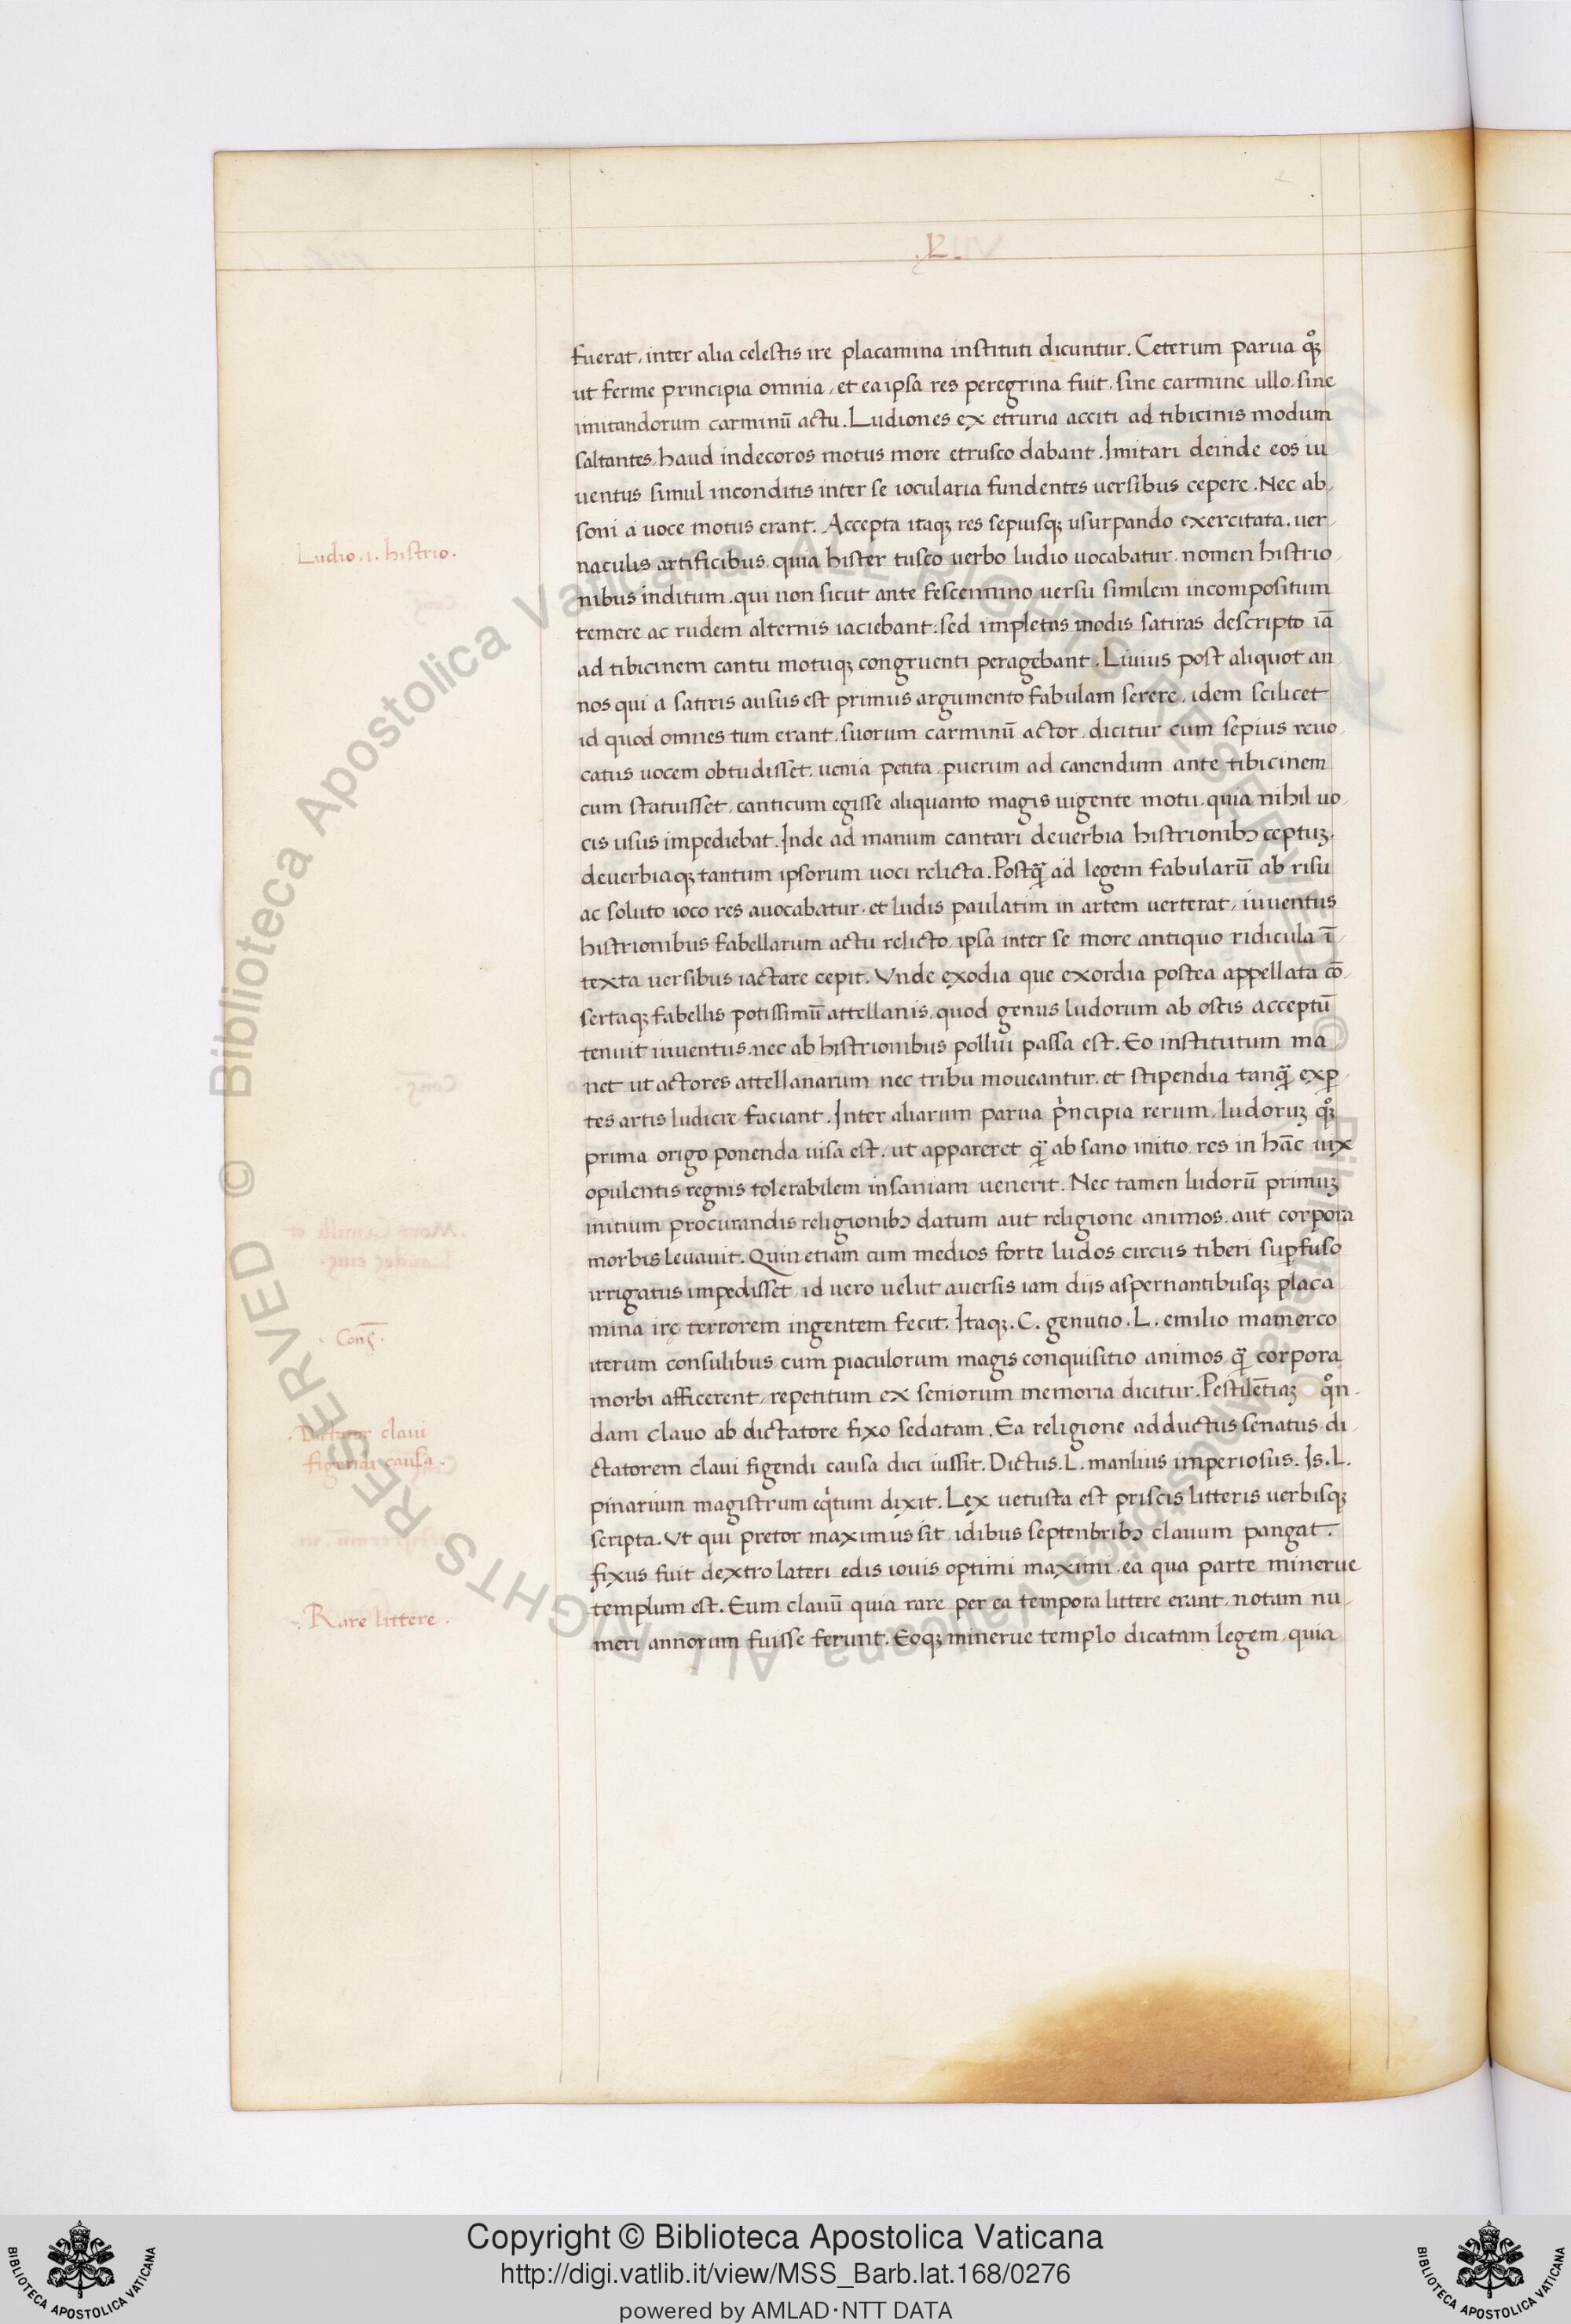 .L.
fuerat, inter alia celestis ire placamina instituti dicuntur. Ceterum parua qͦꝫ
ut ferme principia omnia, et ea ipsa res peregrina fuit. sine carmine ullo. sine
imitandorum carminū actu. Ludiones ex etruria acciti ad tibicinis modum
saltantes, haud indecoros motus more etrusco dabant. Imitari deinde eos iu
uentus simul inconditis inter se iocularia fundentes uersibus cepere. Nec ab,
soni a uoce motus erant. Accepta itaqꝫ res sepiusqꝫ usurpando exercitata. uer,
Ludio. i. histrio.
naculis artificibus, quia hister tusco uerbo ludio uocabatur, nomen histrio,
nibus inditum. qui non sicut ante fescennino uersu similem incompositum
temere ac rudem alternis iaciebant: sed impletas modis satiras descripto iā
ad tibicinem cantu motuqꝫ congruenti peragebant. Liuius post aliquot an,
nos qui a satiris ausus est primus argumento fabulam serere, idem scilicet
id quod omnes tum erant, suorum carminū actor, dicitur cum sepius reuo,
catus uocem obtudisset. uenia petita, puerum ad canendum ante tibicinem
cum statuisset, canticum egisse aliquanto magis uigente motu. quia nihil uo,
cis usus impediebat. Inde ad manum cantari deuerbia histrionibꝯ ceptuꝫ.
deuerbiaqꝫ tantum ipsorum uoci relicta. Postq̄ ad legem fabularū ab risu
ac soluto ioco res auocabatur. et ludis paulatim in artem uerterat, iuuentus
histrionibus fabellarum actu relicto, ipsa inter se more antiquo ridicula ī,
texta uersibus iactare cepit. Vnde exodia que exordia postea appellata cō,
sertaqꝫ fabellis potissimū attellanis, quod genus ludorum ab ostis acceptū
tenuit iuuentus. nec ab histrionibus pollui passa est. Eo institutum ma,
net ut actores attellanarum nec tribu moueantur. et stipendia tanq̄ exꝑ,
tes artis ludicre faciant. Inter aliarum parua pͥncipia rerum, ludoruꝫ qͦꝫ
prima origo ponenda uisa est. ut appareret q̄ ab sano initio res in hāc uix
opulentis regnis tolerabilem insaniam uenerit. Nec tamen ludorū primuꝫ
initium procurandis religionibꝯ datum aut religione animos. aut corpora
morbis leuauit. Quin etiam cum medios forte ludos circus tiberi suꝑfuso
irrigatus impedisset, id uero uelut auersis iam diis aspernantibusqꝫ placa,
Conꝭ.
mina irę terrorem ingentem fecit. Itaqꝫ. C. genutio. L. emilio mamerco
iterum consulibus cum piaculorum magis conquisitio animos q̄ corpora
morbi afficerent, repetitum ex seniorum memoria dicitur. Pestilētiaꝫ qͦn,
Dictator claui
figendi causa.
dam clauo ab dictatore fixo sedatam. Ea religione adductus senatus. di,
ctatorem claui figendi causa dici iussit. Dictus. L. manlius imperiosus. Is. L.
pinarium magistrum eqͥtum dixit. Lex uetusta est priscis litteris uerbisqꝫ
scripta. Vt qui pretor maximus sit idibus septenbribꝯ clauum pangat.
fixus fuit dextro lateri edis iouis optimi maximi. ea qua parte minerue
Rare littere.
templum est. Eum clauū quia rare per ea tempora littere erant, notam nu,
meri annorum fuisse ferunt. Eoqꝫ minerue templo dicatam legem, quia
© Biblioteca Apostolica Vaticana ALL RIGHTS RESERVED
© Biblioteca Apostolica Vaticana ALL RIGHTS RESERVED
Copyright © Biblioteca Apostolica Vaticana
http://digi.vatlib.it/view/MSS_Barb.lat.168/0276
powered by AMLAD·NTT DATA
BIBLIOTECA APOSTOLICA VATICANA
BIBLIOTECA APOSTOLICA VATICANA